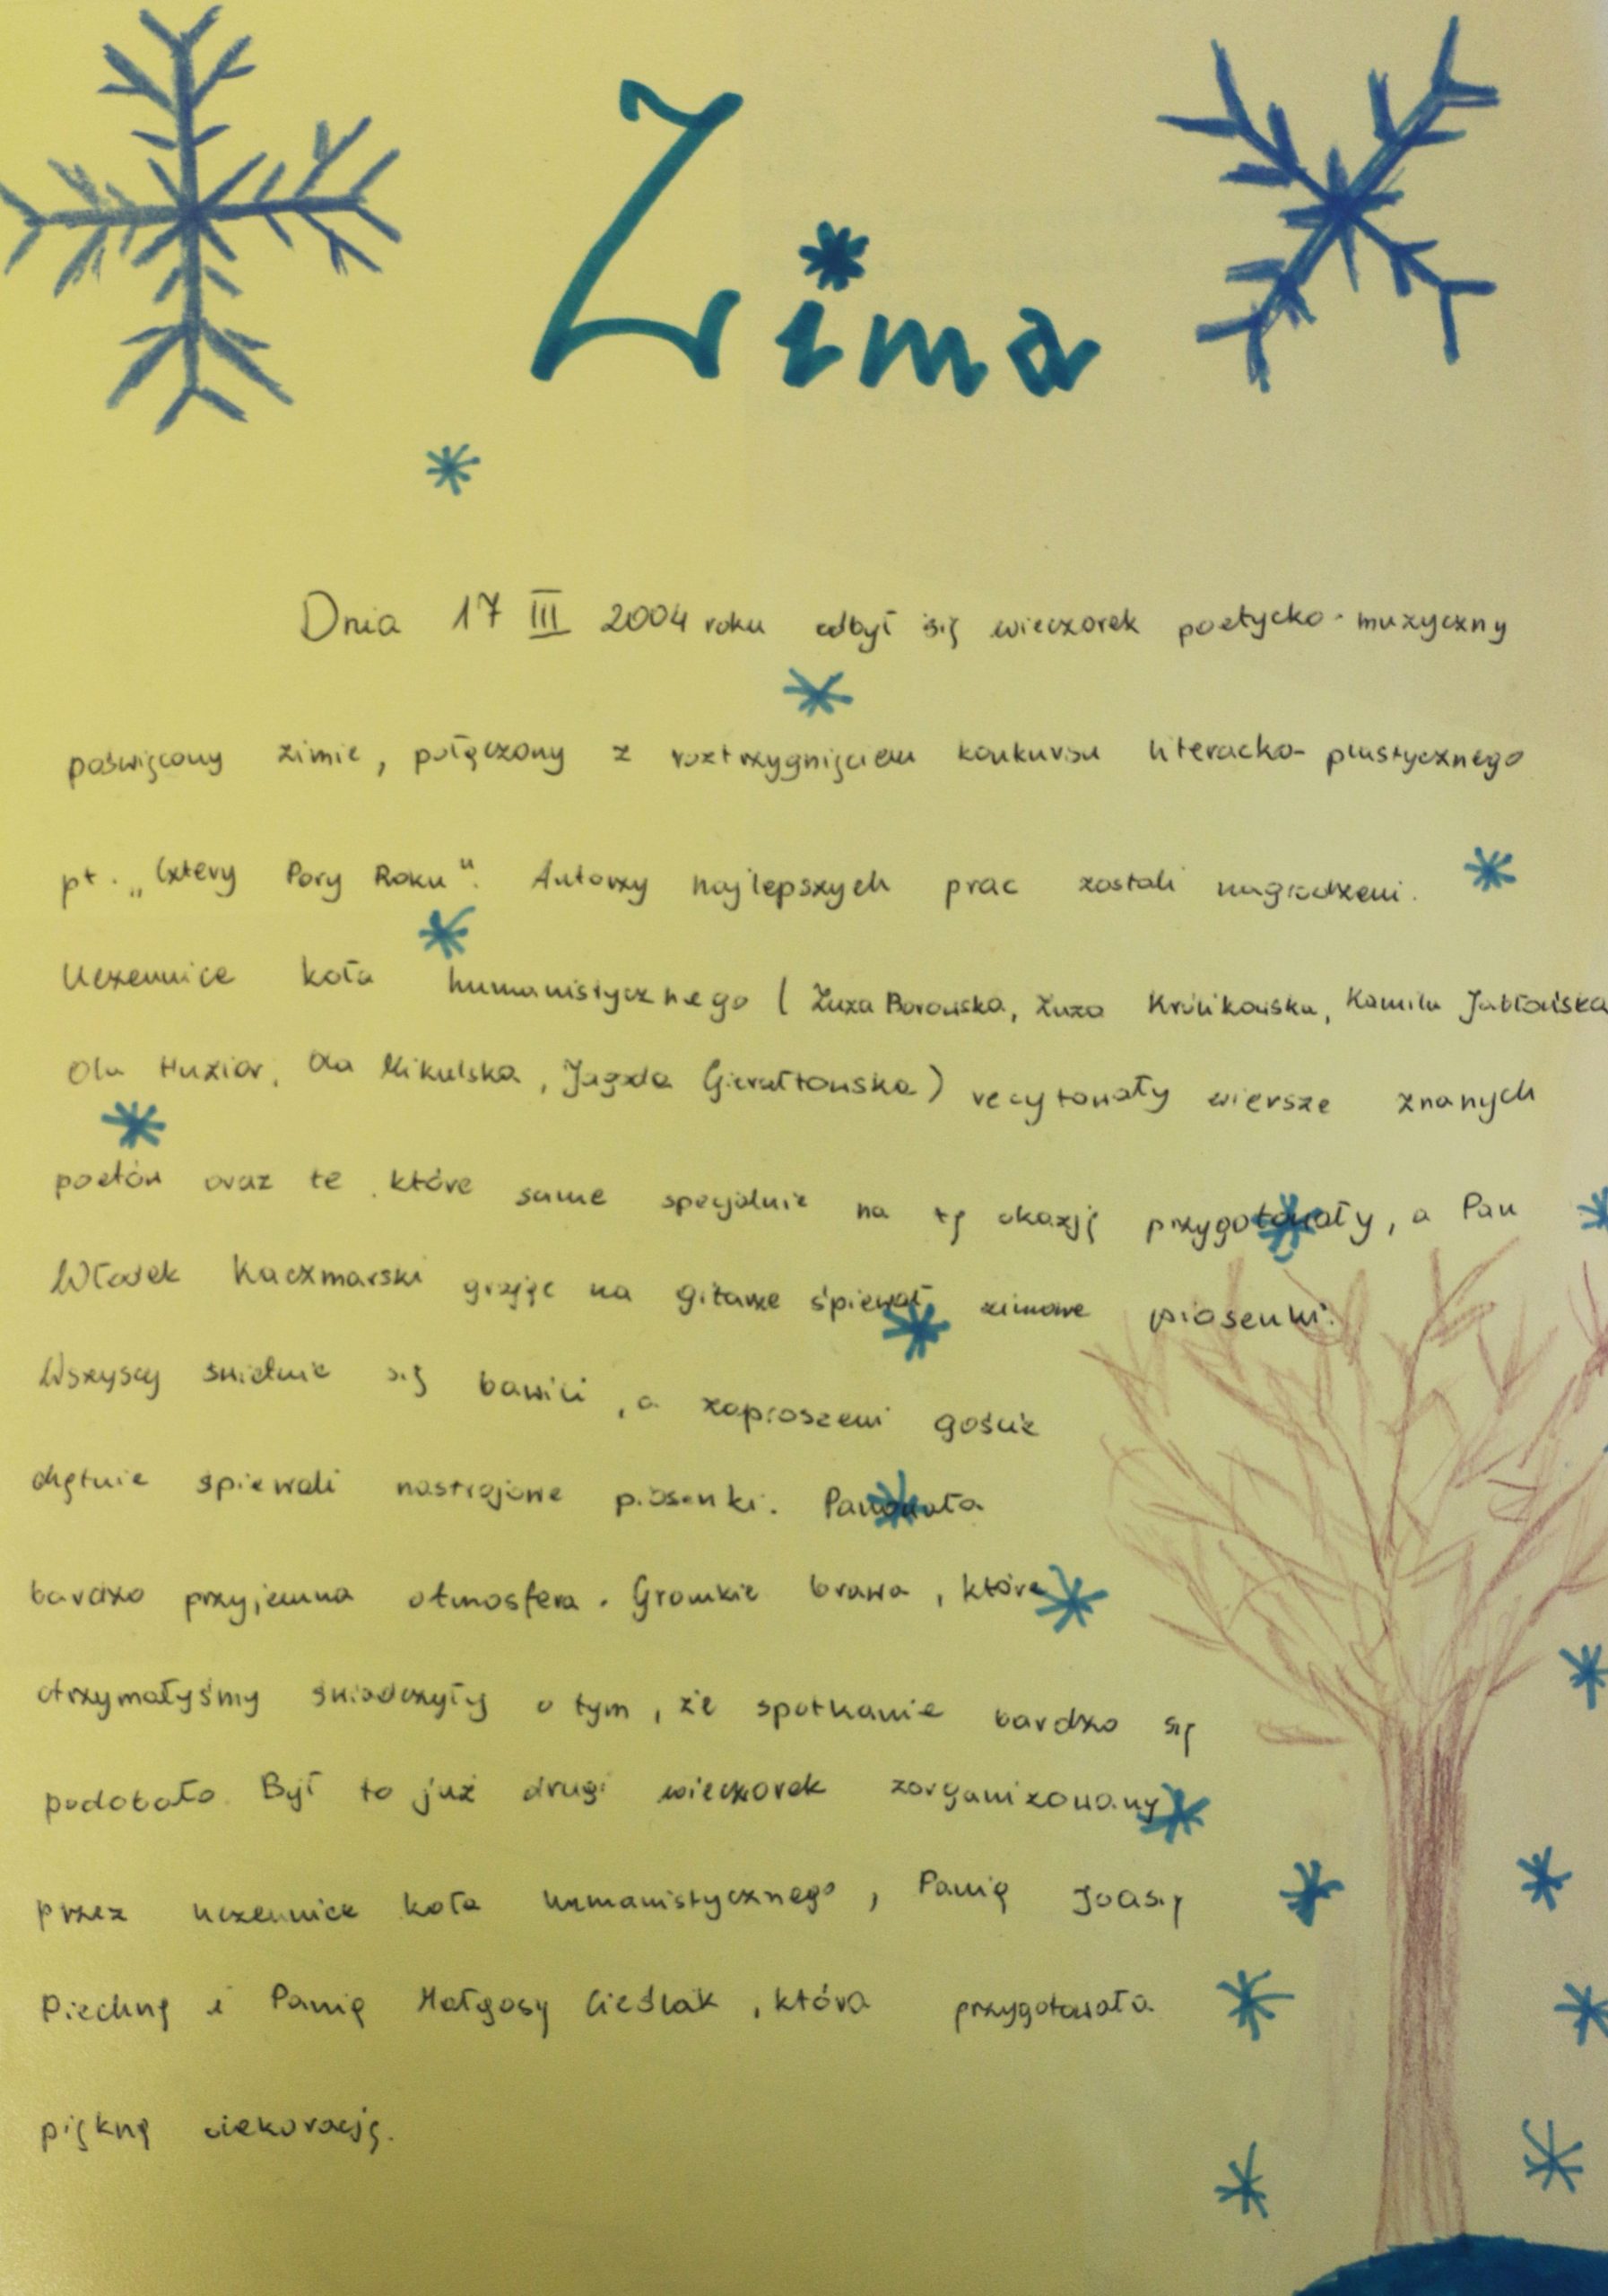 Zima
Dnia 17 III 2004 roku odbył się wieczorek poetycko-muzyczny
poświęcony zimie, połączony z roztrzygnięciem konkursu literacko-plastycznego
pt. „Cztery Pory Roku". Autorzy najlepszych prac zostali nagrodzeni.
Uczennice koła humanistycznego (Zuza Borowska, Zuza Królikowska, Kamila Jabłońska
Ola Huziar, Ola Mikulska, Jagoda Gierałtowska) recytowały wiersze znanych
poetów oraz te które same specjalnie na tę okazję przygotowały, a Pan
Włodek Kaczmarski grając na gitarze śpiewał zimowe piosenki.
Wszyscy świetnie się bawili, a zaproszeni goście
chętnie śpiewali nastrojowe piosenki. Panowała
bardzo przyjemna atmosfera. Gromkie brawa, które
otrzymałyśmy świadczyły o tym, że spotkanie bardzo się
podobało. Był to już drugi wieczorek zorganizowany
przez uczennice koła humanistycznego, Panią Joasię
Piechnę i Panią Małgosę Cieślak, która przygotowała
piękną dekorację.